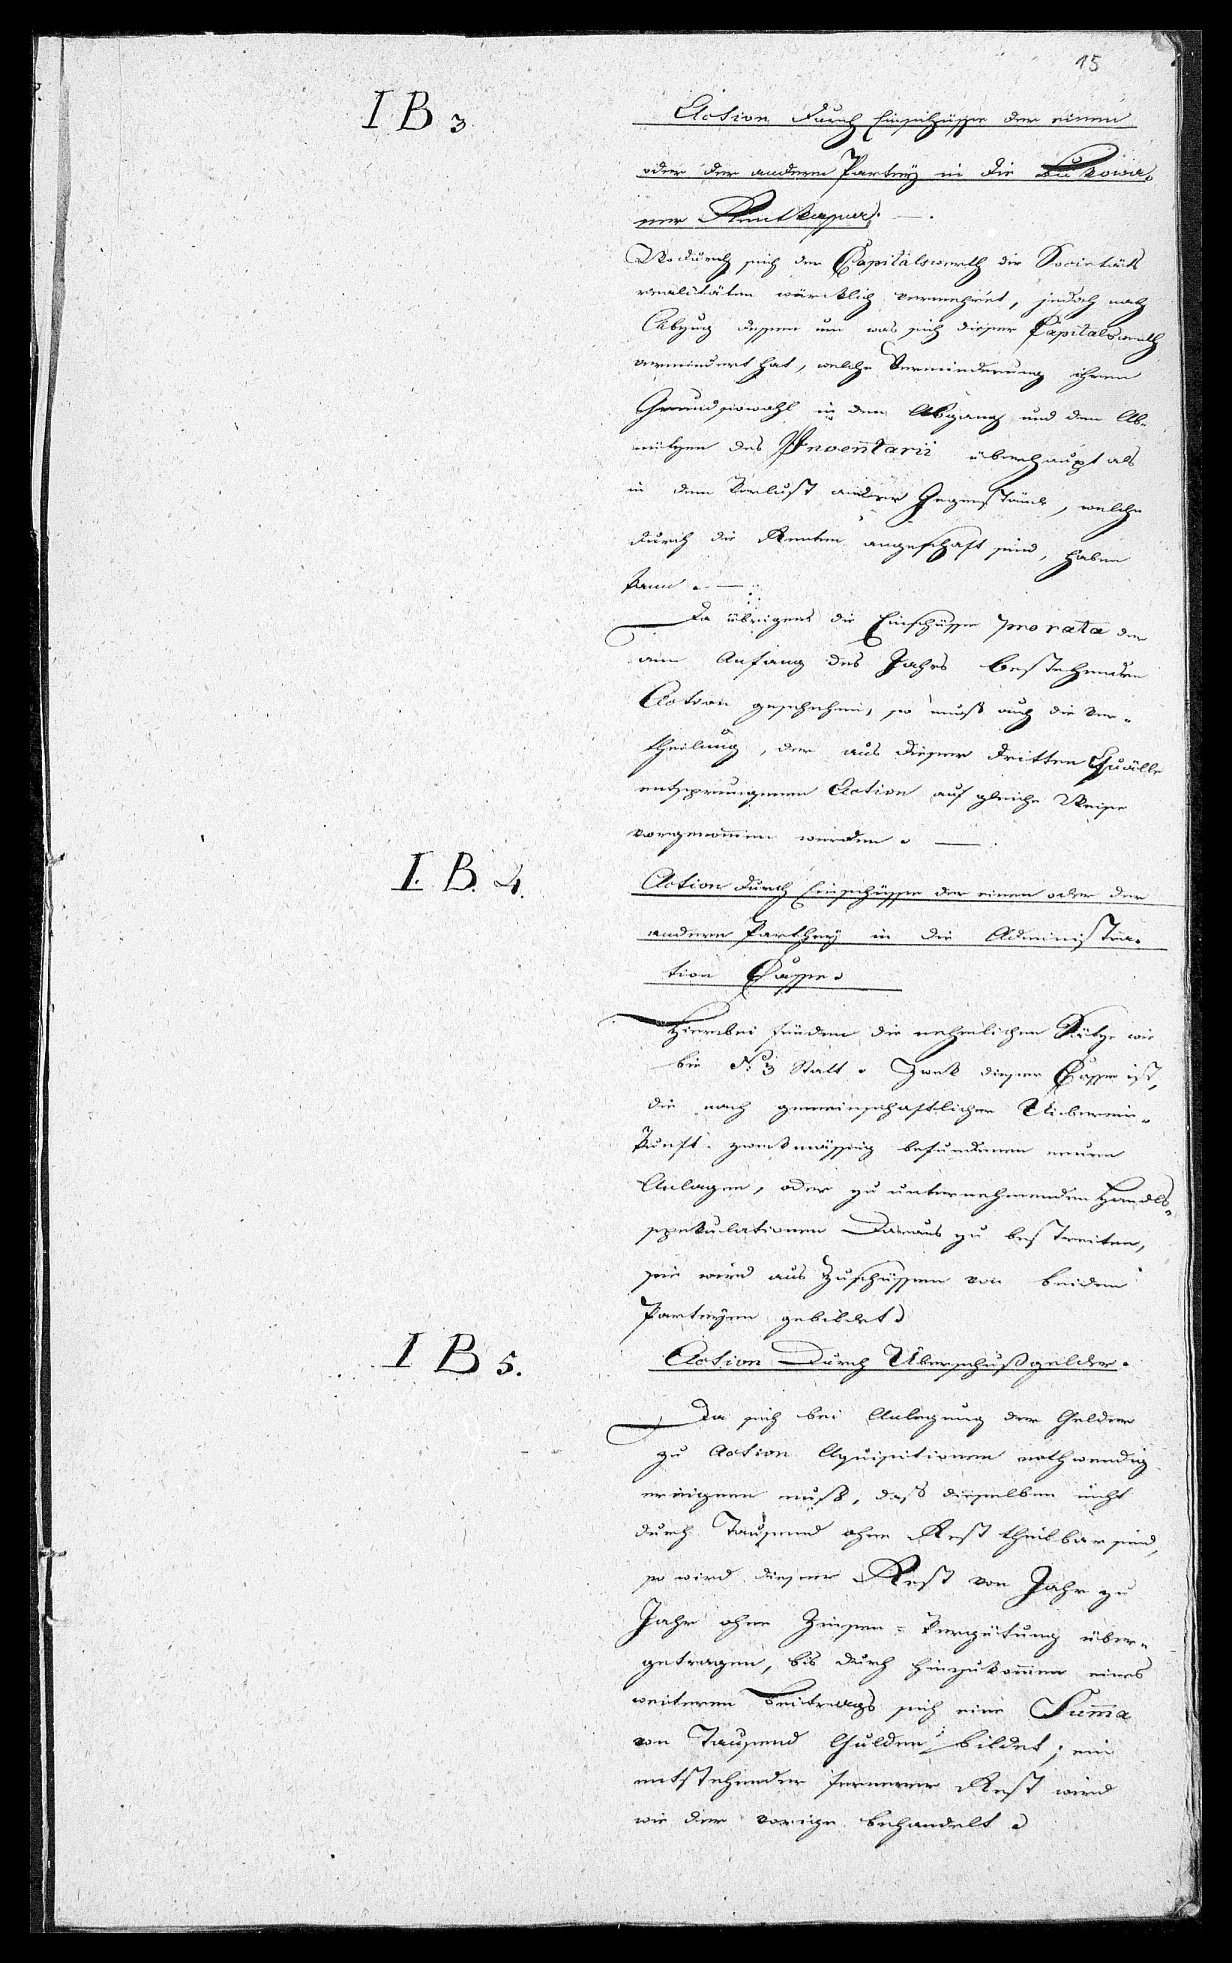 15
I B 3
Action durch Einschüsse der einen
oder der andern Partey in die Bukowa-
ner Rentkassa. —.
Wodurch sich der Capitalswerth der Societäts
realitäten würcklich vermehret, jedoch nach
Abzug dessen um was sich dieser Capitalswerth
vermindert hat, welche Verminderung ihren
Grund sowohl in dem Abgang und den Ab-
nützen des Inventarii überhaupt als
in dem Verlust andrer Gegenstände, welche
durch die Renten angeschaft sind, haben
kann. —.
Da übrigens die Einschüsse pro rata der
am Anfang des Jahrs bestehenden
Action geschehen, so muß auch die Ver-
theilung, der aus dieser dritten Quälle
entsprungenen Action auf gleiche Weise
vorgenommen werden. —.
I. B. 4.
Action durch Einschüsse der einen oder der
andern Parthey in die Administra-
tion Casse.
Hierbei finden die nehmlichen Sätze wie
bei No. 3 Statt. Zwek dieser Casse ist,
die nach gemeinschaftlicher Ueberein-
kunft zwekmässig befundenen neuen
Anlagen, oder zu unternehmenden Handls-
spekulationen daraus zu bestreiten,
sie wird aus Zuschüssen von beiden
Parteyen gebildet.
I B 5.
Action durch Überschußgelder.
Da sich bei Anlegung der Gelder
zu Action Aquisitionen nothwendig
ereignen muß, daß dieselben nicht
durch Tausend ohne Rest theilbar sind,
so wird dieser Rest von Jahr zu
Jahr ohne Zinsen-Vergütung über-
getragen, bis durch hinzukommen eines
weiteren Beitrags sich eine Summa
von Tausend Gulden bildet; ein
entstehender fernerer Rest wird
wie der vorige behandelt.